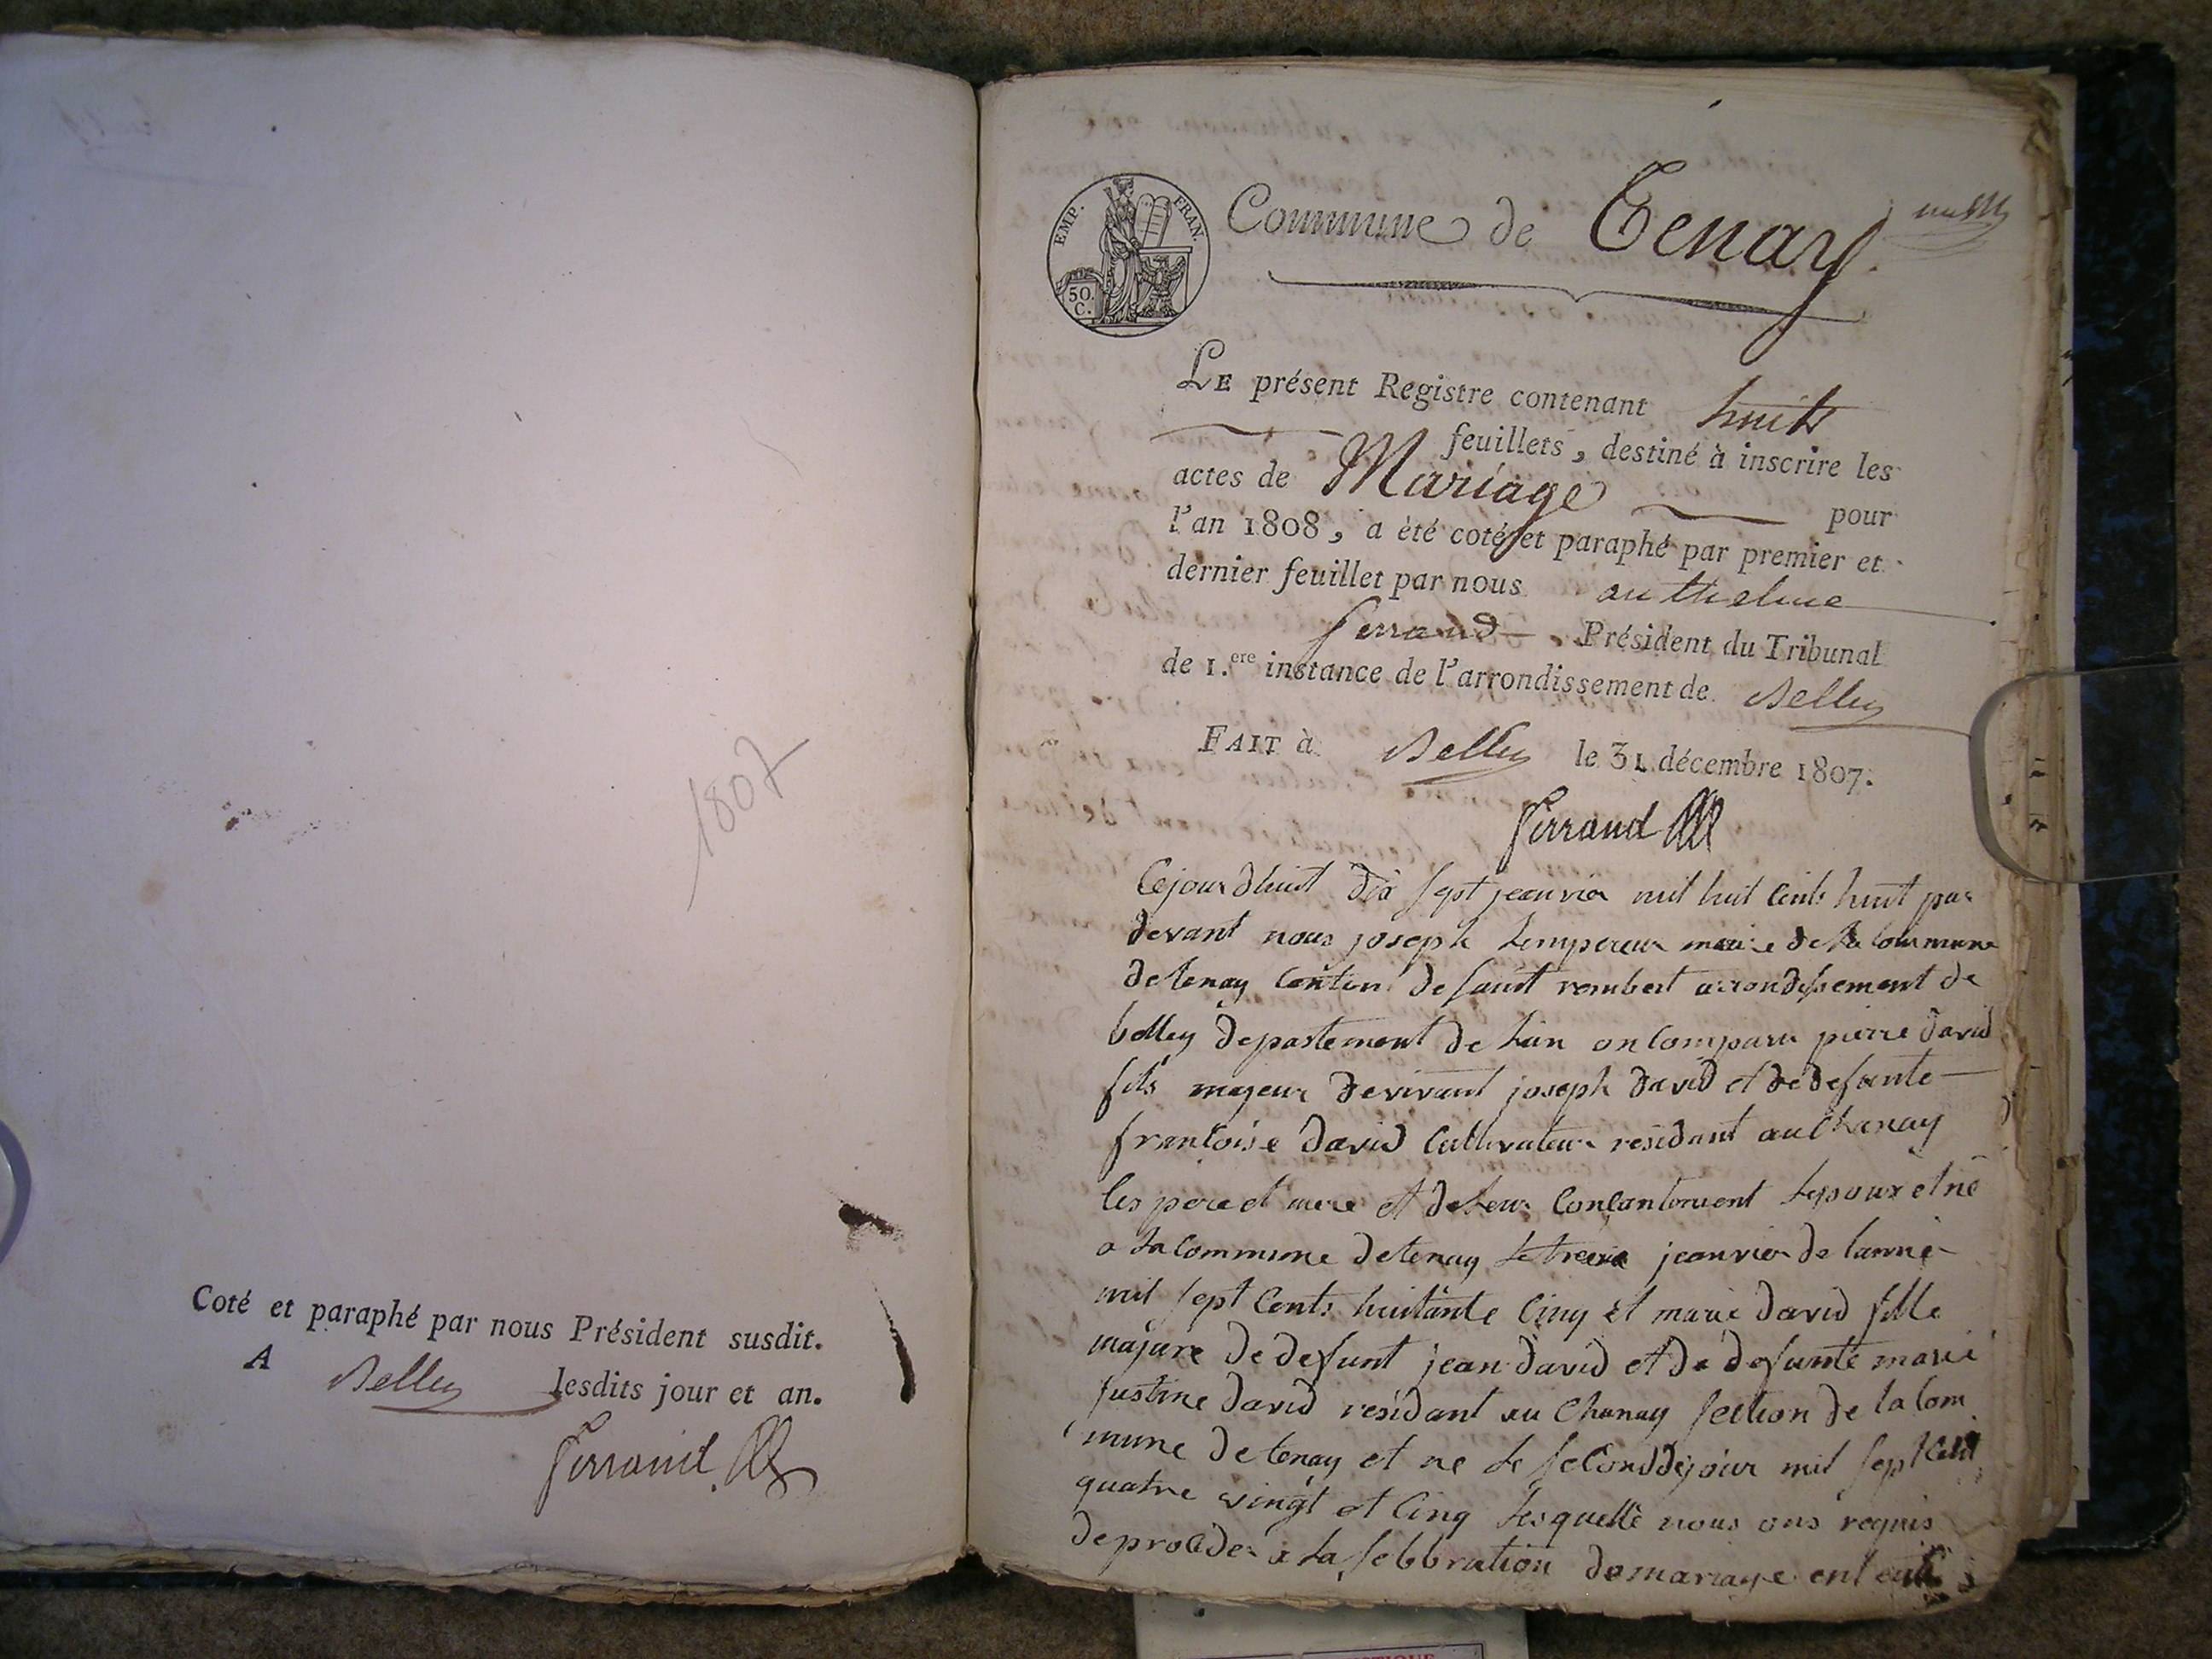 1807
Coté et paraphé par nous Président susdit.
A Belley lesdits jour et an.
Ferrand
EMP. FRAN.
50.
C.
Commune de Tenay
LE présent Registre contenant huit
feuillets, destiné à inscrire les
actes de Mariage pour
l'an 1808, a èté coté et paraphé par premier et
dernier feuillet par nous anthelme
ferrand Président du Tribunal
de 1.ere instance de l'arrondissement de Belley
FAIT à Belley le 31 décembre 1807.
Ferrand
Cejourdhuit dix sept jeanvier mil huit Cents huit par
devant nous joseph Lempereur maire de La Commune
de tenay Canton de saint rembert arrondissement de
belley departement de Lain on Comparu pierre david
fils majeur de vivant joseph david et de defunte
francoise david Cultivateur residant au Chanay
les pere et mere et de Leur Concantement Lepoux et né
a La Commune de tenay Le jeanvier de lanné
mil sept Cents huitante Cinq et marie david fille
majure de defunt jean david et de defunte marie
justine david residant au Chanay section de la Com
mune de tenay et ne Le second jour mil sept Cent
quatre vingt et Cinq Lesquelle nous ons requis
de proceder a La selebration de mariage